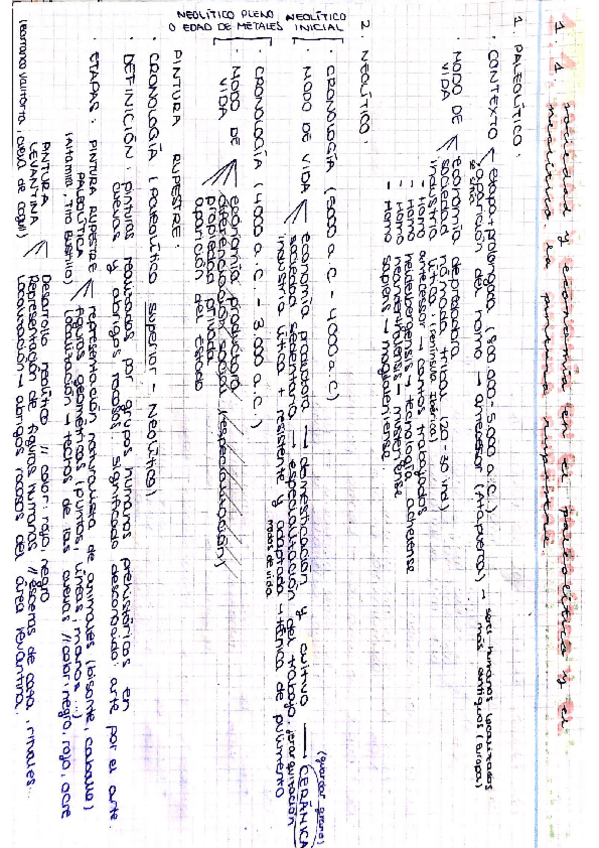 1.1 sociedad y economía en el paleolítico y el
neolítico. La pintura rupestre.
1. PALEOLÍTICO:
· CONTEXTO
etapa + prolongada (800.000 - 5.000 a.C.)
se inicia
aparición del homo → antecessor (Atapuerca) → seres humanos localizados
más antiguos (Europa)
· MODO DE VIDA
economía depredadora
sociedad nómada tribal (20-30 ind)
industria lítica: (Península Ibérica)
- Homo antecessor → cantos trabajados
- Homo heidelbergensis → tecnología achelense
- Homo neandertalensis → musteriense
- Homo sapiens → magdaleniense.
2. NEOLÍTICO:
NEOLÍTICO INICIAL
· CRONOLOGÍA (5000 a.C - 4000 a.C)
· MODO DE VIDA
economía productora → domesticación y cultivo → CERÁNICA
(guardar grano)
sociedad sedentaria → especialización del trabajo, jerarquización
industria lítica + resistente y adaptada → técnica de pulimento
modos de vida
NEOLÍTICO PLENO O EDAD DE METALES
· CRONOLOGÍA (4000 a.C. - 3.000 a.C.)
· MODO DE VIDA
economía productora
diferenciación social (especialización)
propiedad privada
aparición del estado
PINTURA RUPESTRE:
· CRONOLOGÍA (Paleolítico superior - Neolítico)
· DEFINICIÓN: pinturas realizadas por grupos humanos prehistóricos en
cuevas y abrigos rocosos. Significado desconocido: arte por el arte.
· ETAPAS: PINTURA RUPESTRE PALEOLÍTICA
(Altamira, Tito Bustillo)
representación naturalista de animales (bisonte, caballo)
figuras geométricas (puntos, líneas, manos...)
localización → techos de las cuevas // color: negro, rojo, ocre
PINTURA LEVANTINA
Desarrollo neolítico // color: rojo, negro
Representación de figuras humanas // escenas de caza, rituales..
Localización → abrigos rocosos del área levantina.